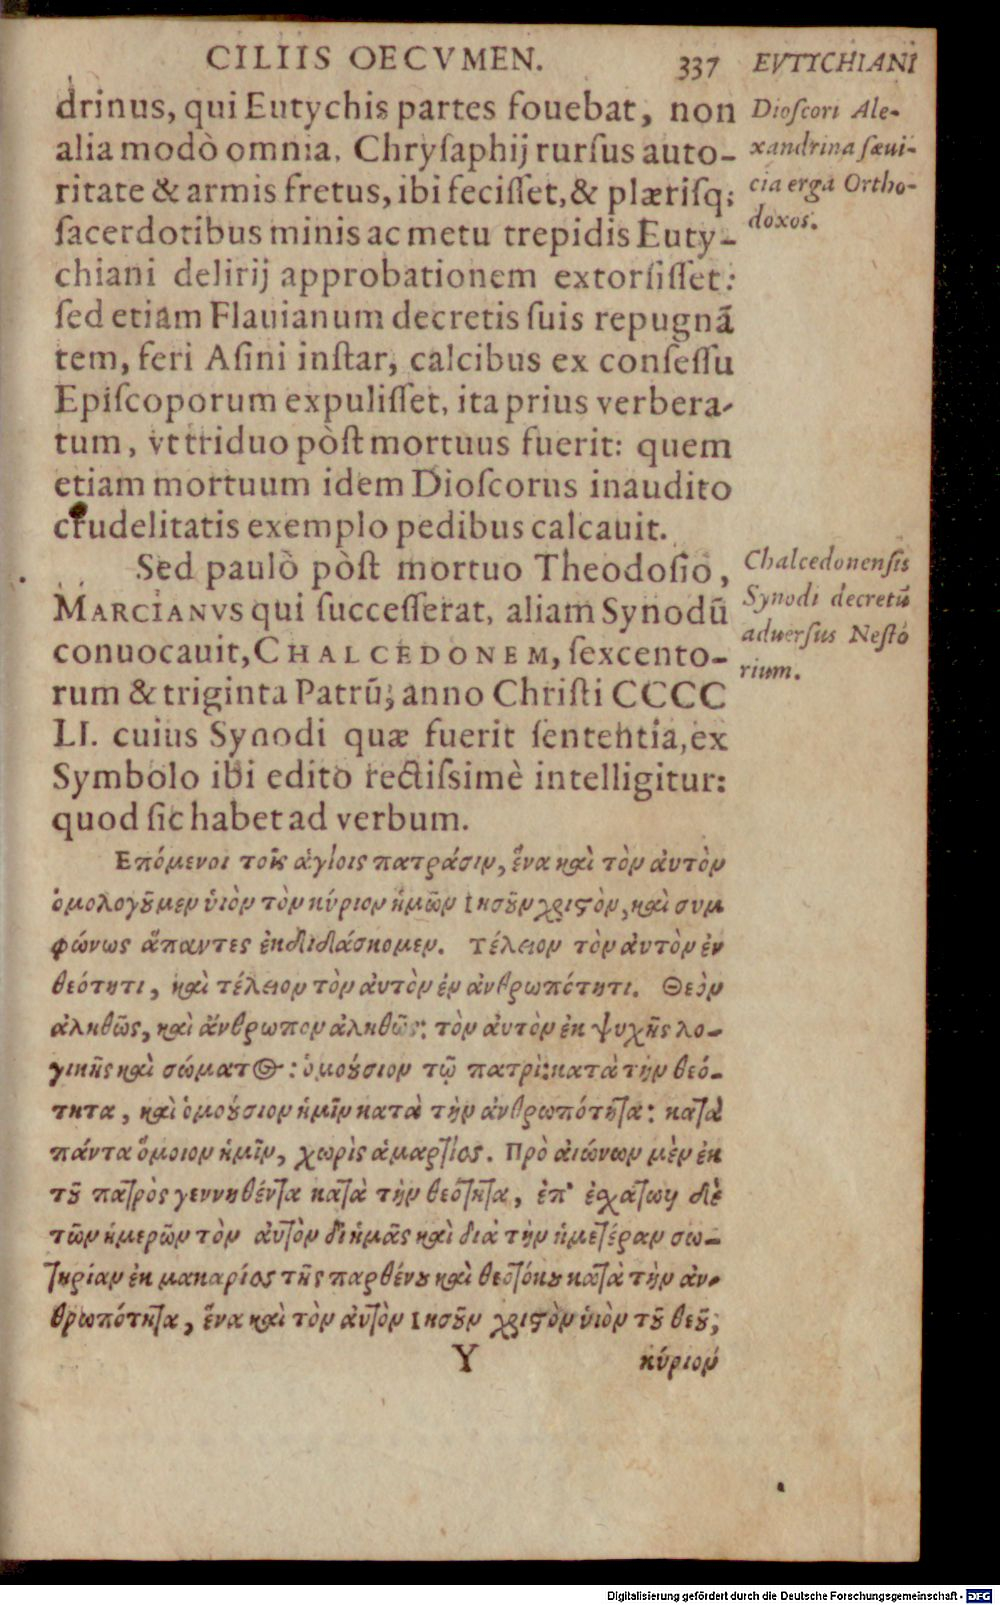 CILIIS OECVMEN. 337 EVTYCHIANI
drinus, qui Eutychis partes fouebat, non
alia modò omnia, Chrysaphij rursus auto-
ritate & armis fretus, ibi fecisset, & plærisq;
sacerdotibus minis ac metu trepidis Euty-
chiani delirij approbationem extorsisset:
sed etiam Flauianum decretis suis repugnã
tem, feri Asini instar, calcibus ex consessu
Episcoporum expulisset, ita prius verbera-
tum, vt triduo pòst mortuus fuerit: quem
etiam mortuum idem Dioscorus inaudito
crudelitatis exemplo pedibus calcauit.
Dioscori Ale-
xandrina sæui-
cia erga Ortho-
doxos.
Sed paulò pòst mortuo Theodosio,
MARCIANVS qui successerat, aliam Synodũ
conuocauit, CHALCEDONEM, sexcento-
rum & triginta Patrũ; anno Christi CCCC
LI. cuius Synodi quæ fuerit sententia, ex
Symbolo ibi edito rectissimè intelligitur:
quod sic habet ad verbum.
Chalcedonensis
Synodi decretũ
aduersus Nestó
rium.
Επόμενοι τοῖς ἁγίοις πατράσιν, ἕνα καὶ τὸν ἀυτὸν
ὁμολογοῦμεν ὑιὸν τὸν κύριον ἡμῶν Ιησοῦν χριστὸν, καὶ συμ
φώνως ἅπαντες ἐκδιδάσκομεν. Τέλειον τὸν ἀυτὸν ἐν
θεότητι, καὶ τέλειον τὸν ἀυτὸν ἐν ἀνθρωπότητι. Θεὸν
ἀληθῶς, καὶ ἄνθρωπον ἀληθῶς: τὸν ἀυτὸν ἐκ ψυχῆς λο-
γικῆς καὶ σώματος: ὁμοούσιον τῷ πατρὶ: κατὰ τὴν θεό-
τητα, καὶ ὁμοούσιον ἡμῖν κατὰ τὴν ἀνθρωπότητα: κατὰ
πάντα ὅμοιον ἡμῖν, χωρὶς ἁμαρτίας. Πρὸ ἀιώνων μὲν ἐκ
τοῦ πατρὸς γεννηθέντα κατὰ τὴν θεότητα, ἐπ' ἐσχάτων δὲ
τῶν ἡμερῶν τὸν ἀυτὸν δι ἡμᾶς καὶ διὰ τὴν ἡμετέραν σω-
τηρίαν ἐκ μακαρίας τῆς παρθένου καὶ θεοτόκου κατὰ τὴν ἀν-
θρωπότητα, ἕνα καὶ τὸν ἀυτὸν Ιησοῦν χριστὸν ὑιὸν τοῦ θεοῦ,
Y κύριον
Digitalisierung gefördert durch die Deutsche Forschungsgemeinschaft - DFG